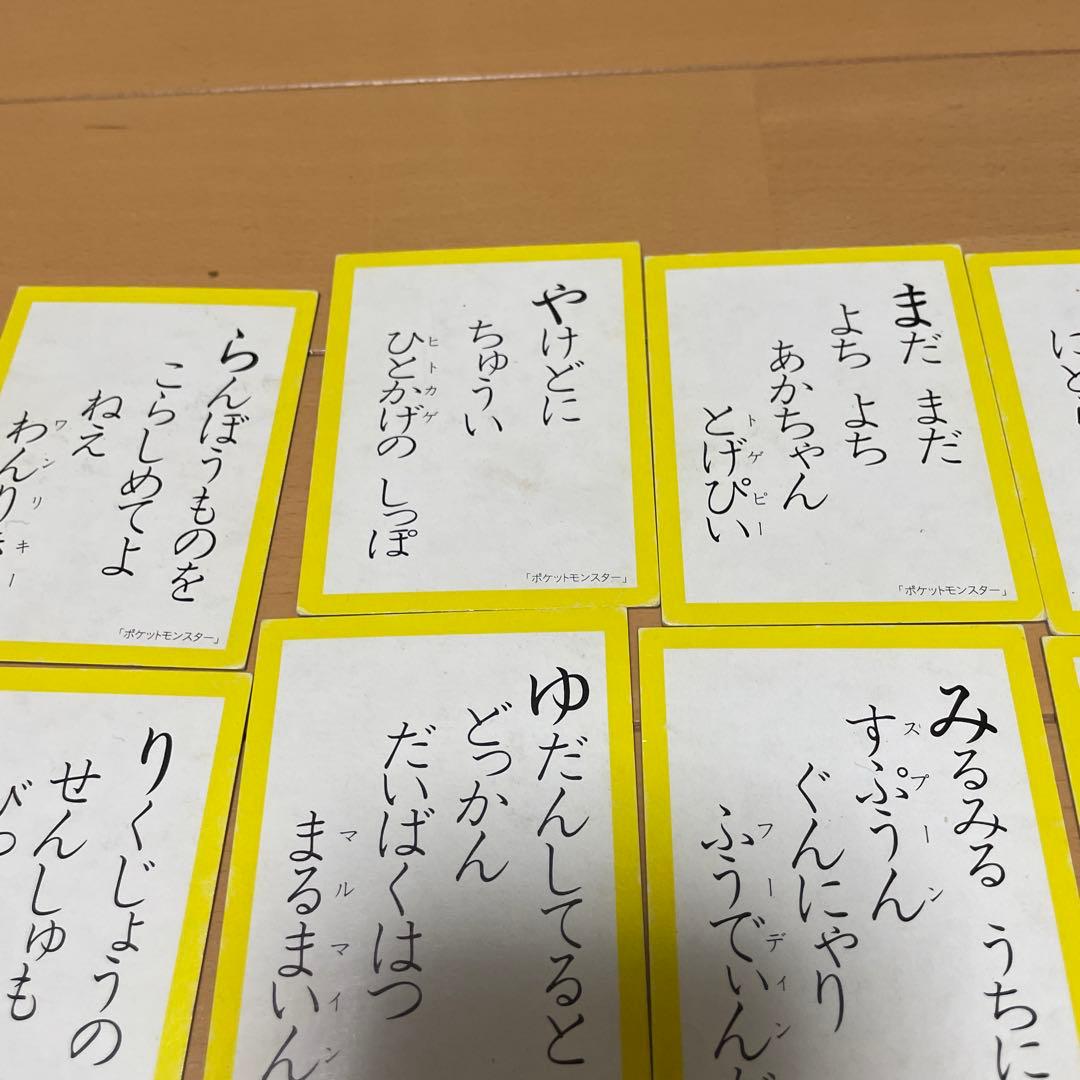 らんぼうものを
こらしめてよ
ねえ
わんり
ワンリキー
「ポケットモンスター」
やけどに
ちゅうい
ひとかげの しっぽ
ヒトカゲ
「ポケットモンスター」
まだ まだ
よち よち
あかちゃん
とげぴい
トゲピー
「ポケットモンスター」
りくじょうの
せんしゅも
ゆだんしてると
どっかん
だいばくはつ
まるまいん
マルマイン
みるみる うちに
すぷうん
スプーン
ぐんにゃり
ふうでぃん
フーディン